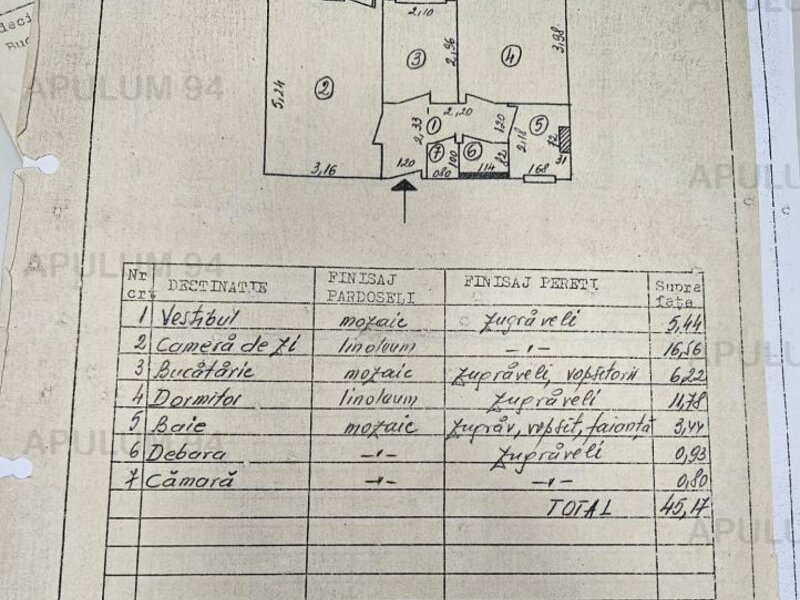 deci
Buc
APULUM 94
2,10
5,24
2
3
2,96
4
3,98
3,16
2,33
1
2,20
1,20
2,18
5
72
31
7
6
1,00
82
120
080
114
168
APULUM 94
Nr crt DESTINATIE FINISAJ PARDOSELI FINISAJ PERETI Supra fațe
1 Vestibul mozaic zugrăveli 5,44
2 Cameră de zi linoleum -"- 16,56
3 Bucătărie mozaic zugrăveli, vopsitorii 6,22
4 Dormitor linoleum zugrăveli 11,78
5 Baie mozaic zugrăv, vopsit, faianță 3,44
6 Debara -"- zugrăveli 0,93
7 Cămară -"- -"- 0,80
TOTAL 45,17
APULUM 94